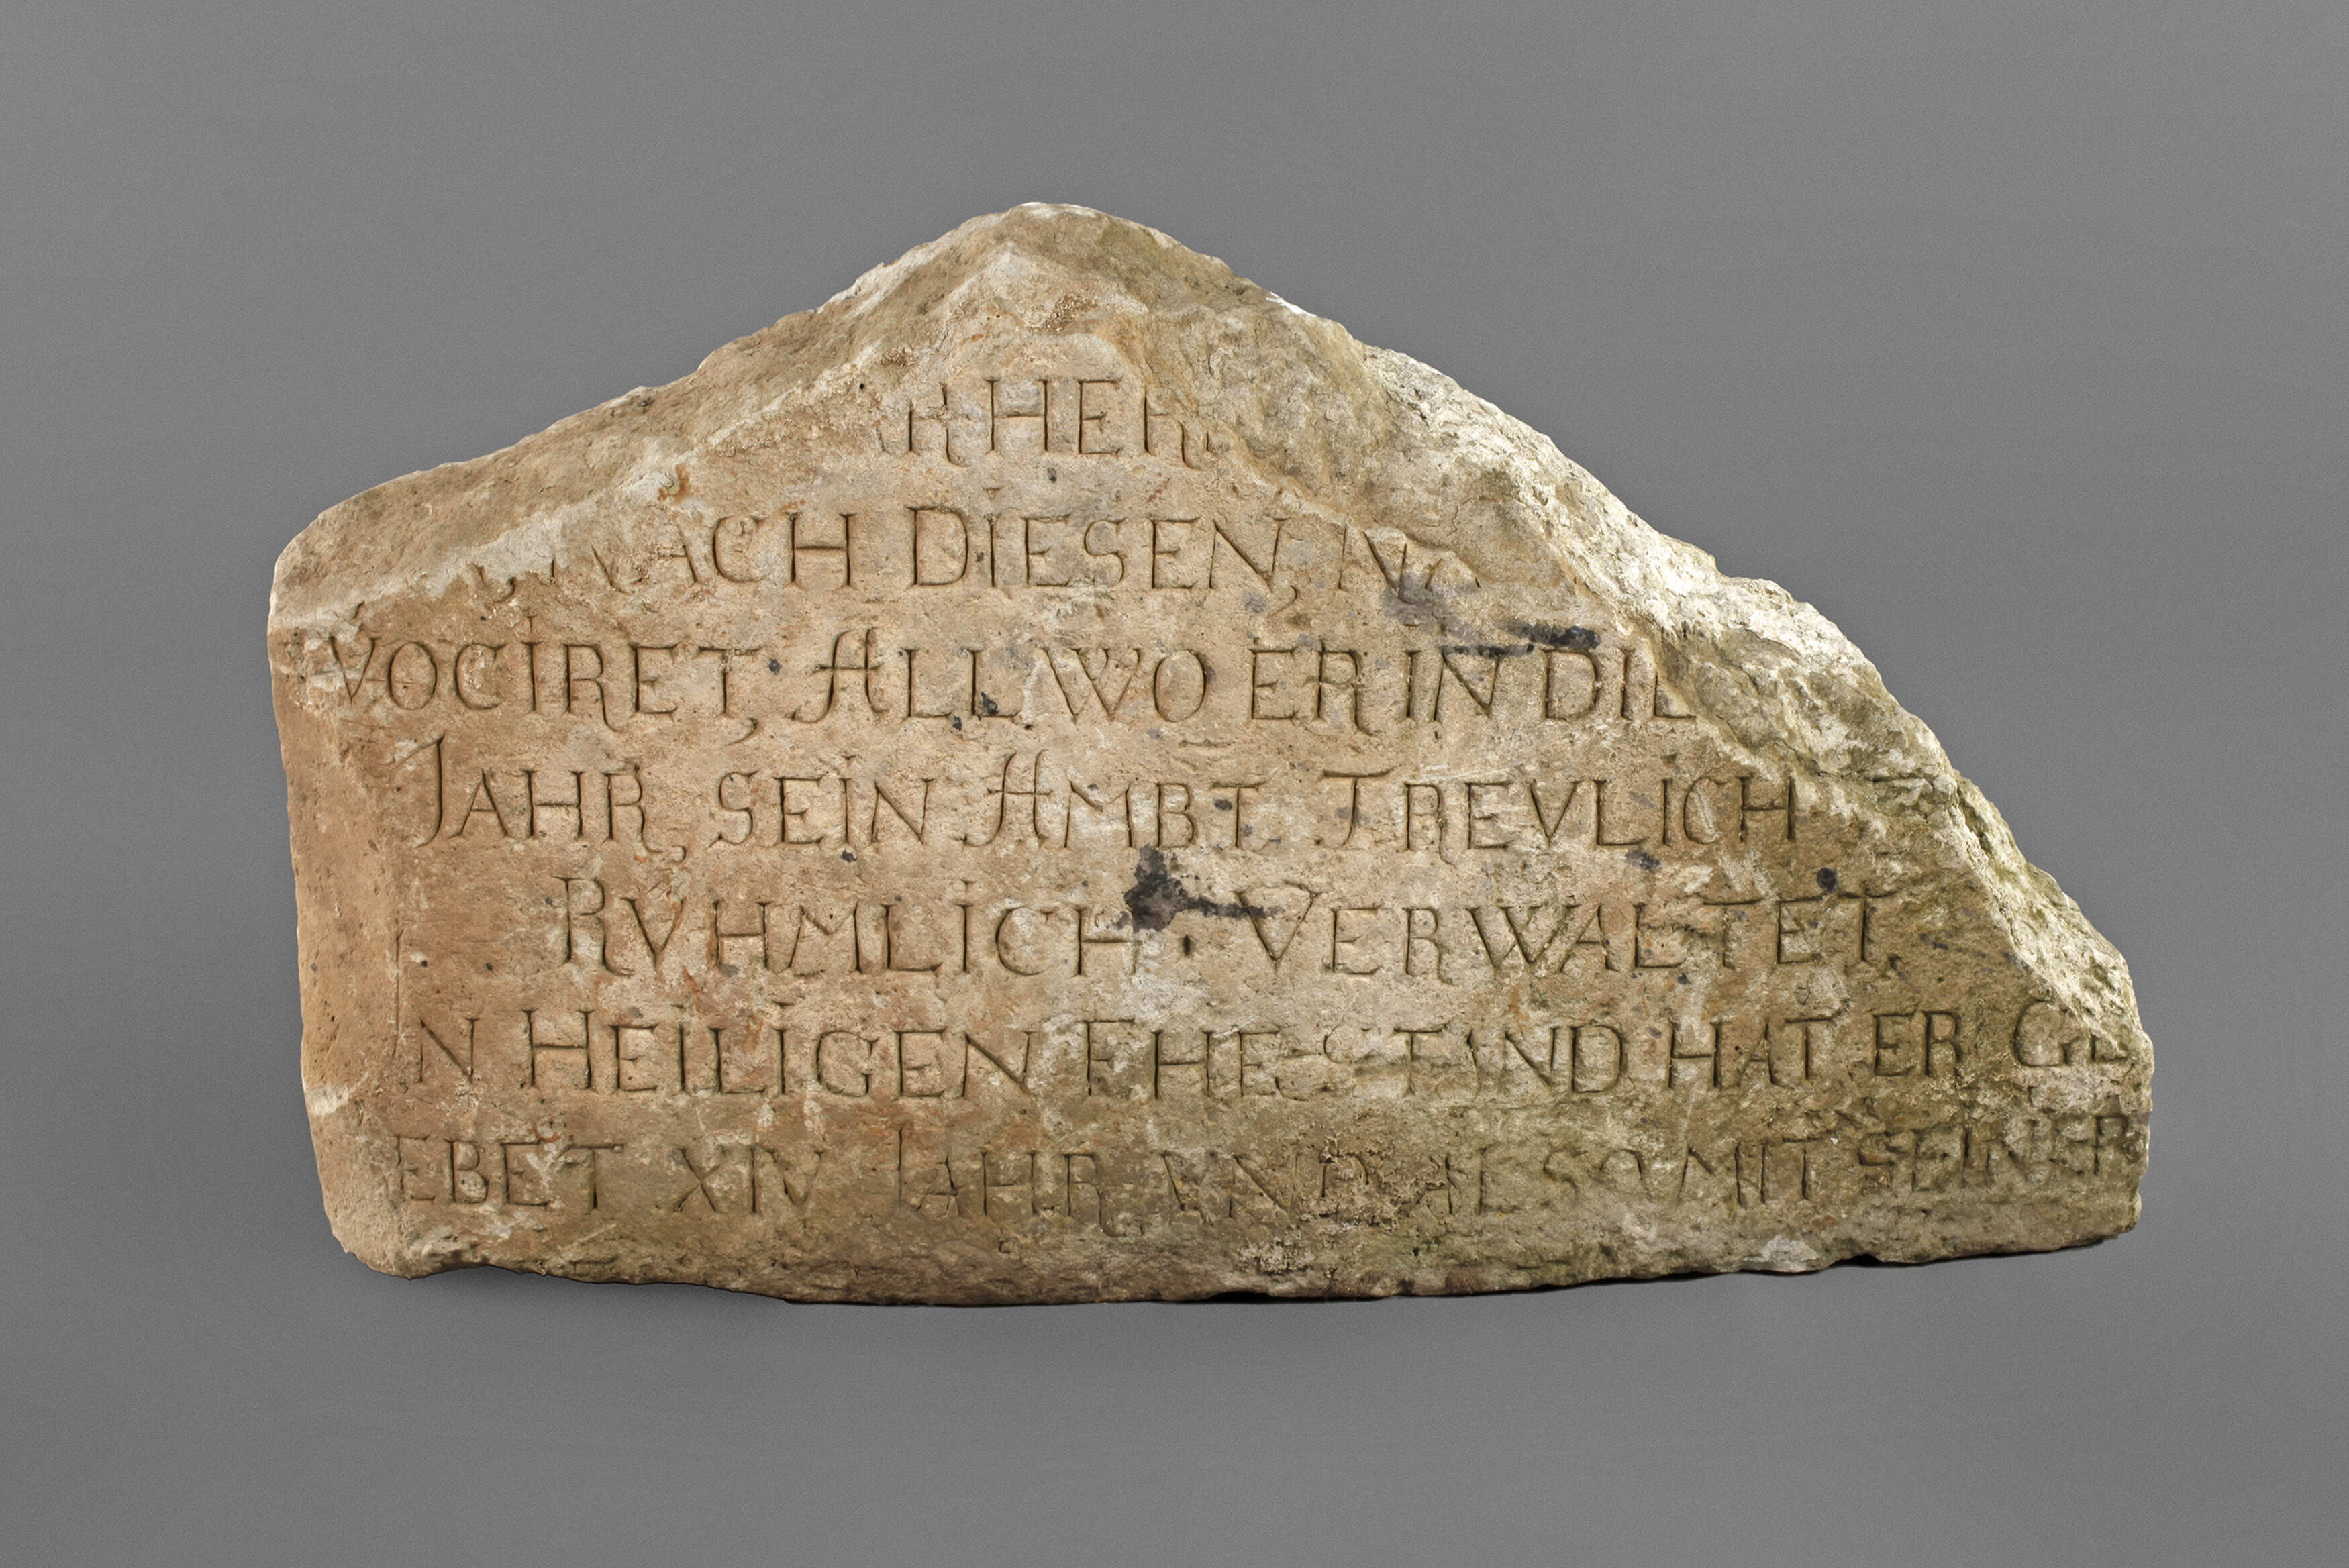 RHER
NACH DIESEN, NA
VOCIRET, ALLWO ER IN DIE
JAHR, SEIN AMBT TREVLICH
RVHMLICH · VERWALTET,
N HEILIGEN EHESTAND HAT ER GE
EBET XIV JAHR, VND ALSO MIT SEINER